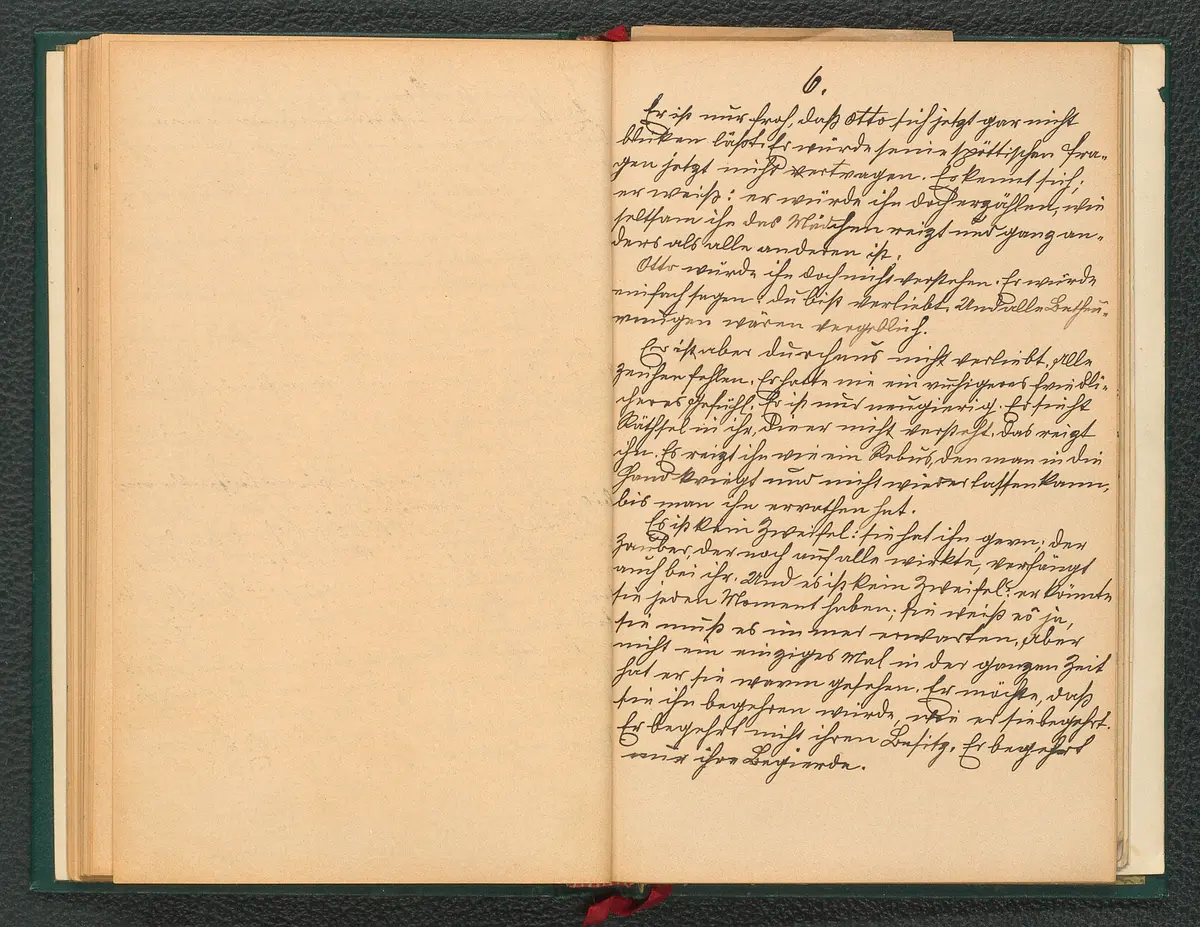 6.
Er ist nur froh, daß Otto sich jetzt gar nicht
blicken läßt. Er würde seine spöttischen Fra-
gen jetzt nicht vertragen. Er kennt sich;
er weiß: er würde ihm doch erzählen, wie
seltsam ihn das Mädchen reizt und ganz an-
ders als alle anderen ist.
Otto würde ihn doch nicht verstehen. Er würde
einfach sagen: du bist verliebt. Und alle Betheu-
rungen wären vergeblich.
Er ist aber durchaus nicht verliebt. Alle
Zeichen fehlen. Er hatte nie ein ruhigeres friedli-
cheres Gefühl. Er ist nur neugierig. Er sieht
Räthsel in ihr, die er nicht versteht. Das reizt
ihn. Es reizt ihn wie ein Rebus, den man in die
Hand kriegt und nicht wieder lassen kann,
bis man ihn errathen hat.
Es ist kein Zweifel: sie hat ihn gern; der
Zauber, der noch auf alle wirkte, verfängt
auch bei ihr. Und es ist kein Zweifel: er könnte
sie jeden Moment haben; sie weiß es ja,
sie muß es immer erwarten. Aber
nicht ein einziges Mal in der ganzen Zeit
hat er sie warm gesehen. Er möchte, daß
sie ihn begehren würde, wie er sie begehrt.
Er begehrt nicht ihren Besitz. Er begehrt
nur ihre Begierde.